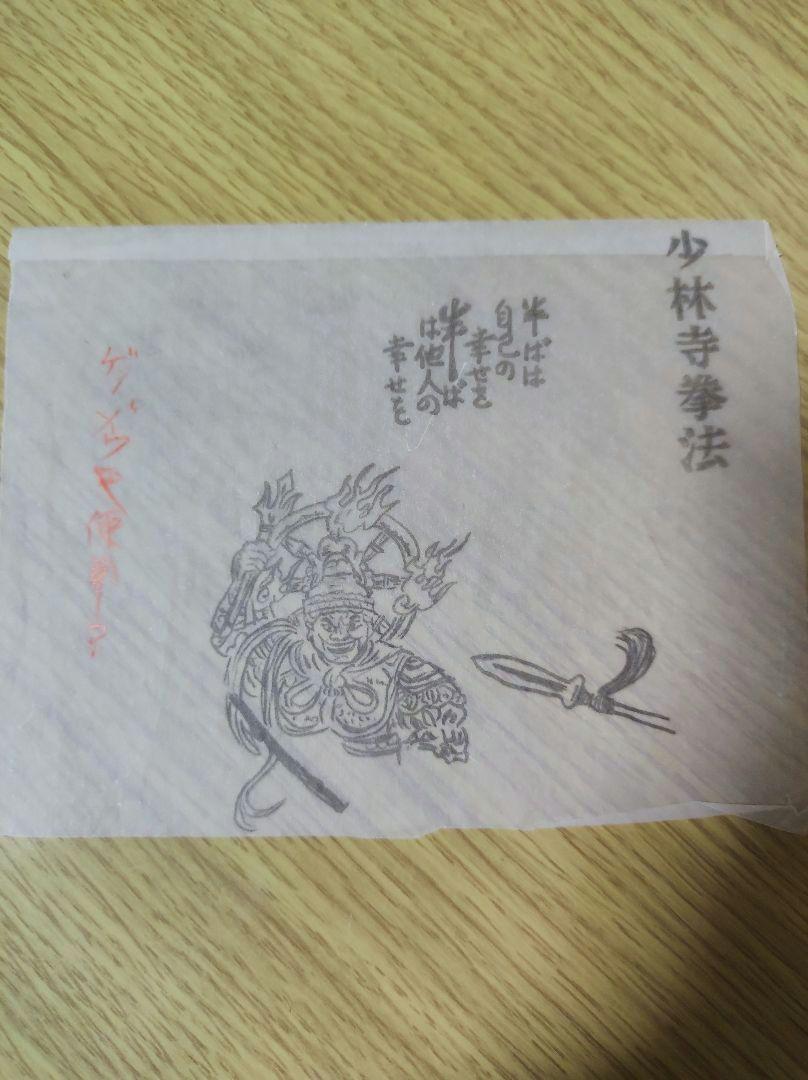 少林寺拳法
半ばは
自己の
幸せを
半ば
は他人の
幸せを